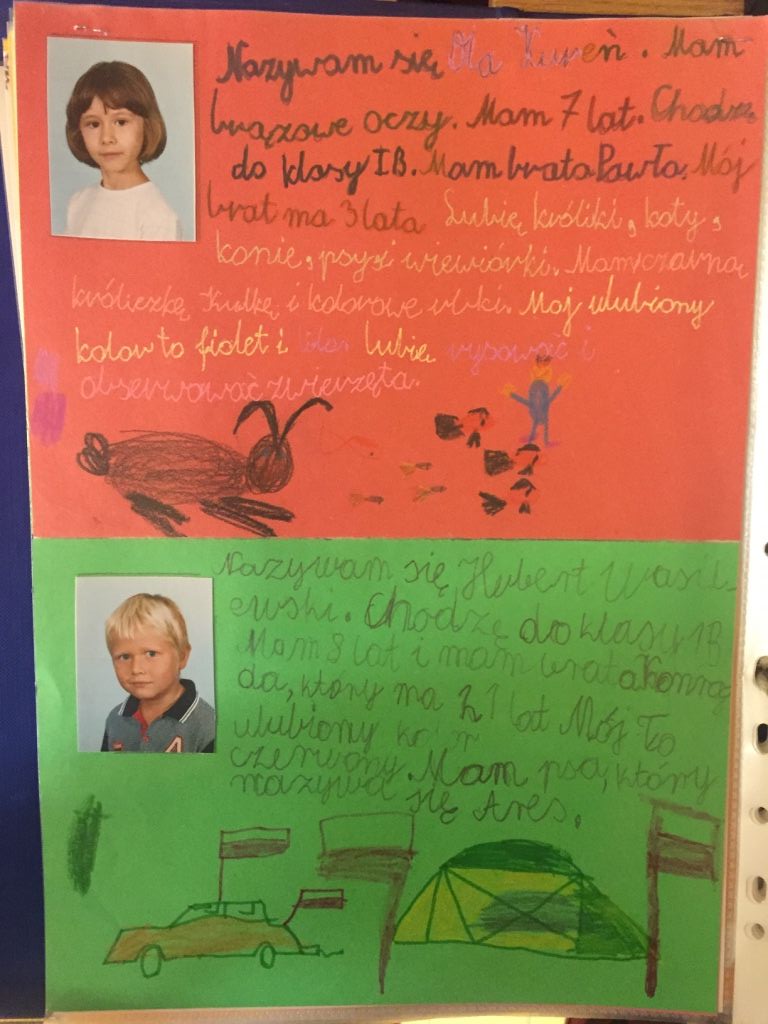 Nazywam się Ola Kureń. Mam
brązowe oczy. Mam 7 lat. Chodzę
do klasy IB. Mam brata Pawła. Mój
brat ma 3 lata Lubię króliki, koty,
konie, psy i wiewiórki. Mam czarną
króliczkę Kulkę i kolorowe rybki. Mój ulubiony
kolor to fiolet i lila. lubię rysować i
obserwować zwierzęta.
Nazywam się Hubert Wasil-
ewski. Chodzę do klasy 1B
Mam 8 lat i mam brata Konra
da, który ma 21 lat Mój
ulubiony kolor to
czerwony. Mam psa, który
nazywa się Ares.